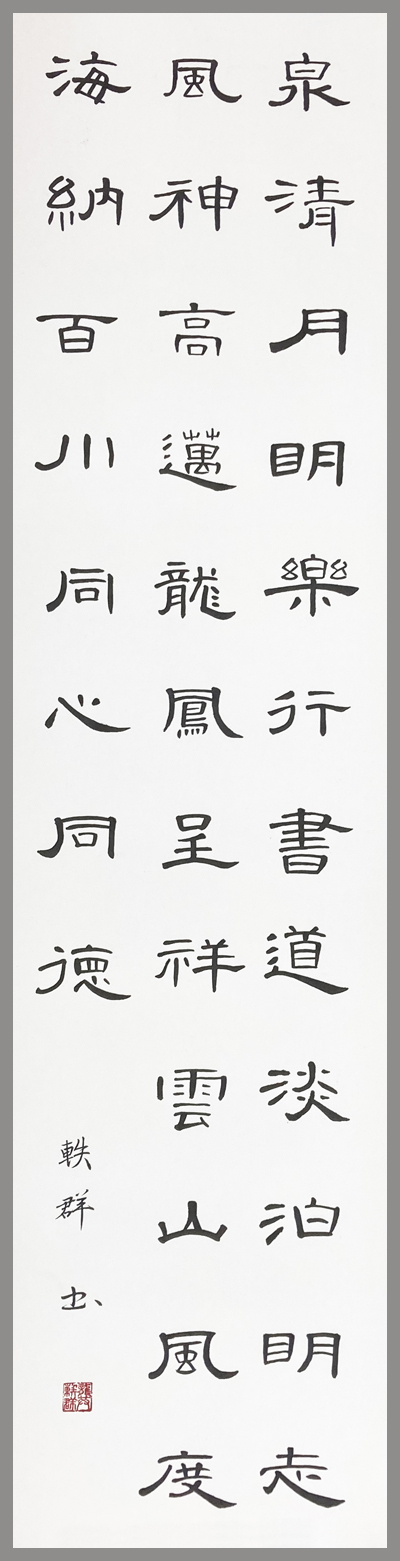 泉清月明樂行書道淡泊明志
風神高邁龍鳳呈祥雲山風度
海納百川同心同德
軼群书